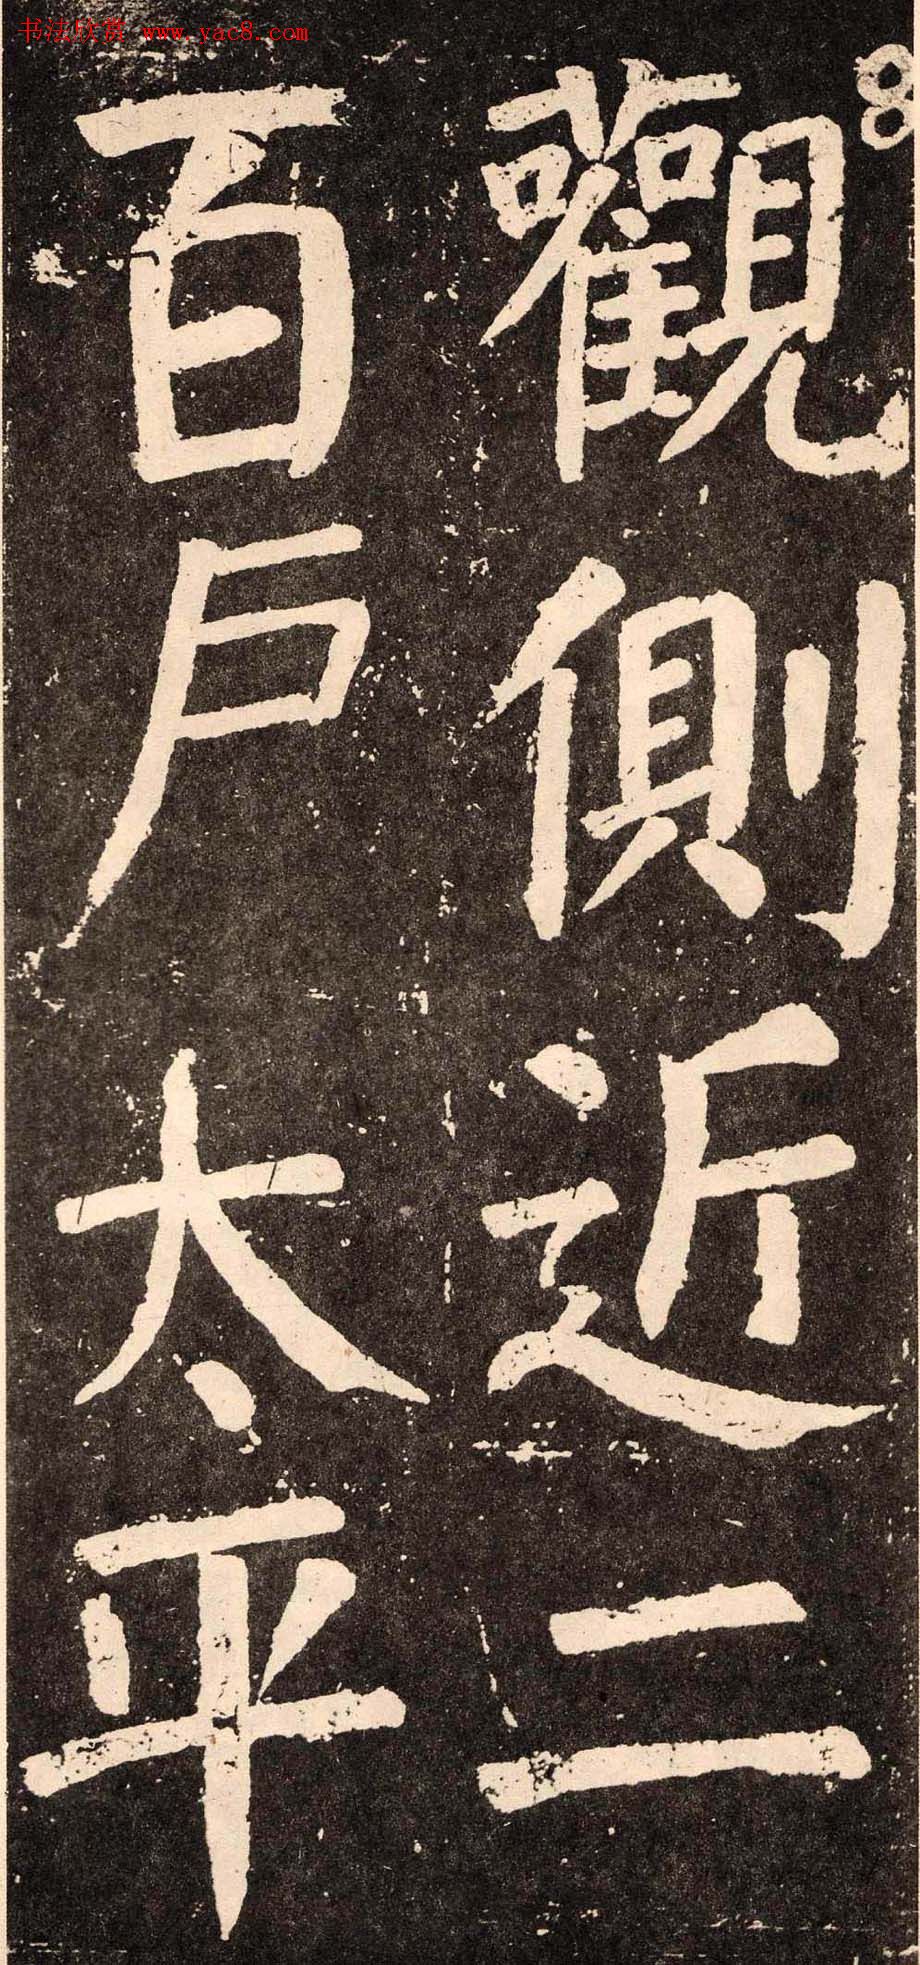 书法欣赏 www.yac8.com
8
觀側近二
百戶太平